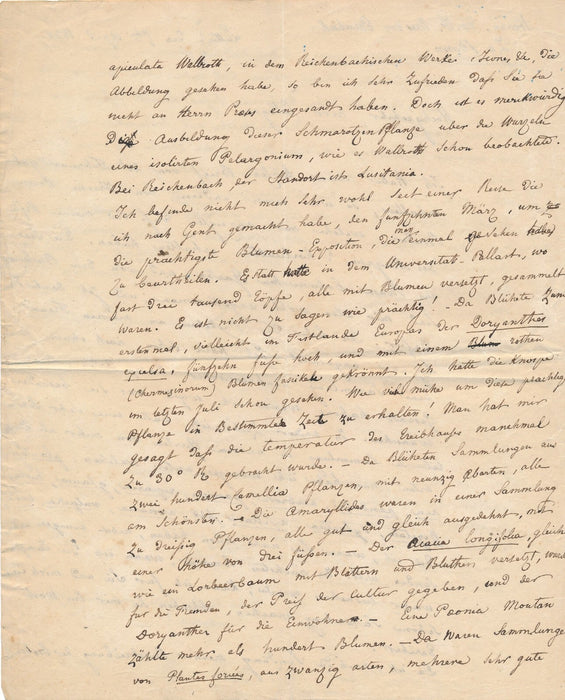 apiculata Wallroth, in dem Reichenbachischen Werke Icones, &c, die
Abbildung gesehen habe, so bin ich sehr zufrieden dass Sie sie
nicht an Herrn eingesandt haben. Doch ist es merkwürdig
Die Ausbildung dieser Schmarotzen Pflanze uber die Wurzeln
eines isolirten Pelargonium, wie es Wallroth schon beobachtete.
Bei Reichenbach der Standort ists Lusitania.
Ich befinde nicht mich sehr wohl seit einer Reise die
ich nach Gent gemacht habe, den fünfzehnsten März, um
die prächtigste Blumen-Exposition, die man einmal gesehen
zu beurtheilen. Es statt hatte in dem Universitat-Pallast, wo
fast drei tausend Töpfe, alle mit Blumen versetzt, gesammelt
waren. Es ist nicht zu sagen wie prächtig! - Da Blühete zum
erstenmal, vielleicht im Festlande Europas der Doryanthes
excelsa, fünfzehn fuse hoch, und mit einem rothen
(Chermesinorum) Blumen fasikel gekrönnt. Ich hatte die Knospe
im letzten Juli schon gesehen. Wie viel mühe um diese prachtege
Pflanze in Bestimmte Zeit zu erhalten. Man hat mir
gesagt dass die temperatur des Treibhaufs manchmal
zu 30° R gebracht wurde. - Da Blüheten Sammlungen aus
zwei hundert Camellia Pflanzen, mit neunzig Abarten, alle
am Schönsten. - Die Amaryllides waren in einer Sammlung
zu dreissig Pflanzen, alle gut und gleich ausgedehnt, mit
einer Höhe von drei füssen. - Der Acacia longifolia, gleich
wie ein Lorbeerbaum mit Blättern und Blüthen versetzt, wurde
für die Fremden, der Preis der Cultur gegeben, und der
Doryanthes für die Einwohner. - Eine Pæonia Moutan
zählte mehr als hundert Blumen. - Da waren Sammlunge
von Plantes forcées, aus zwanzig arten, mehrere sehr gute